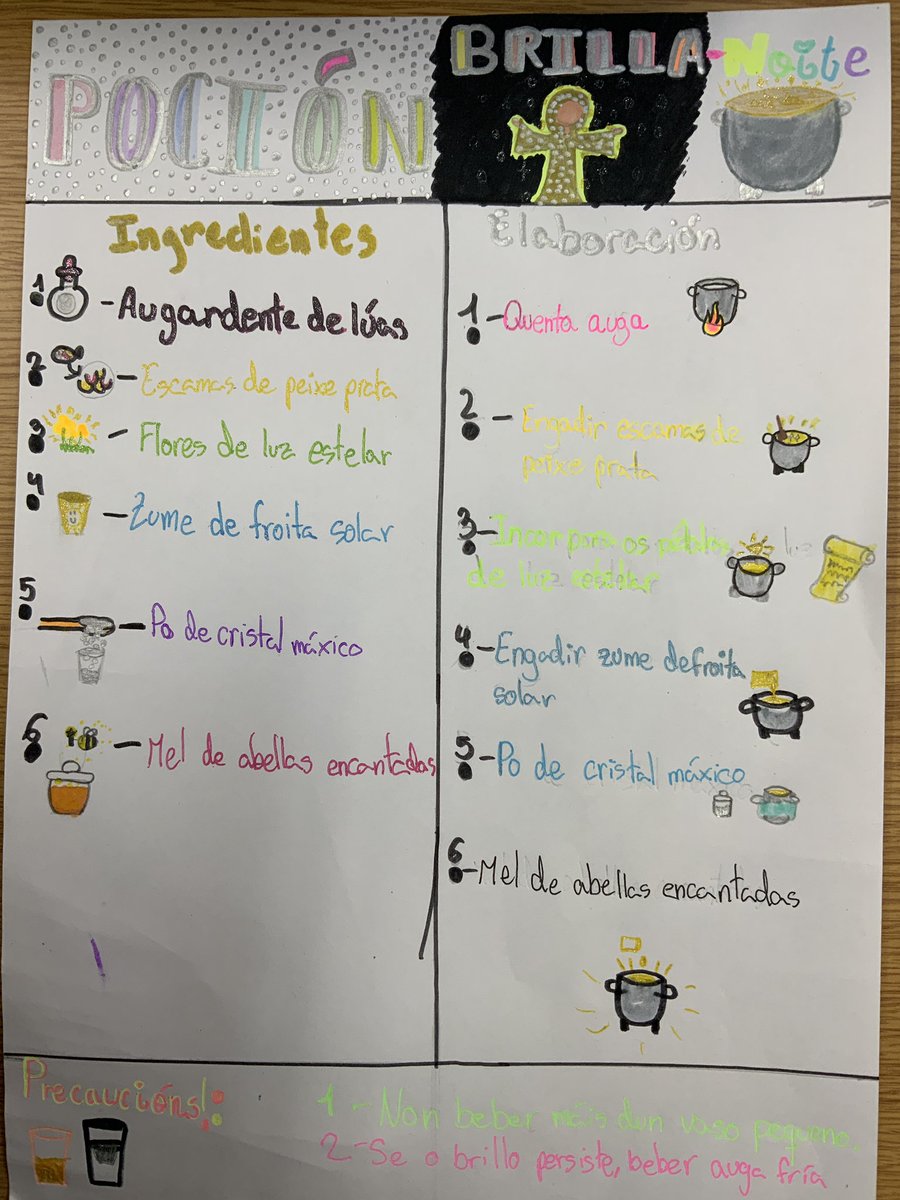 POCIÓN BRILLA-Noite
Ingredientes
1. -Augardente de lúas
2. -Escamas de peixe prata
3. - Flores de luz estelar
4. -Zume de froita solar
5. - Po de cristal máxico
6. - Mel de abellas encantadas
Elaboración
1. -Quenta auga
2. - Engadir escamas de
peixe prata
3. -Incorpora os pétalos
de luz estelar
4. -Engadir zume de froita
solar
5. -Po de cristal máxico
6. -Mel de abellas encantadas
Precaucións!
1 - Non beber máis dun vaso pequeno.
2-Se o brillo persiste, beber auga fría